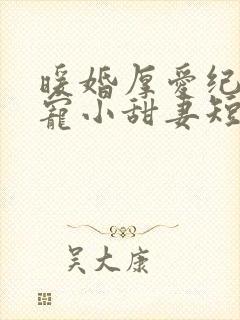 暖婚厚爱纪
寵小甜妻短
吴大康